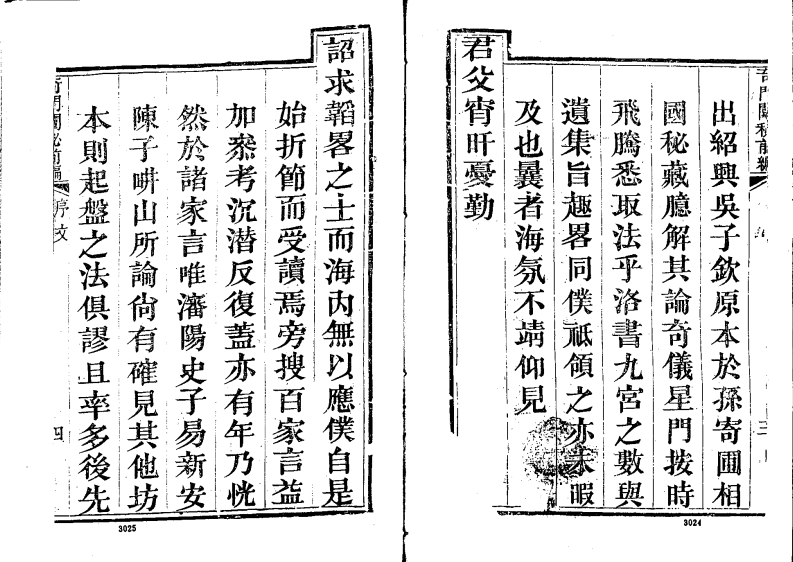 出紹興吳子欽原本於孫寄圃相
國秘藏臆解其論奇儀星門按時
飛騰悉取法乎洛書九宮之數與
遺集旨趣畧同僕祗領之亦未暇
及也曩者海氛不靖仰見
君父宵旰憂勤
3024
詔求韜畧之士而海內無以應僕自是
始折節而受讀焉旁搜百家言益
加叅考沉潛反復蓋亦有年乃恍
然於諸家言唯瀋陽史子易新安
陳子畊山所論尙有確見其他坊
本則起盤之法俱謬且率多後先
奇門闡秘前編 序文 四
3025